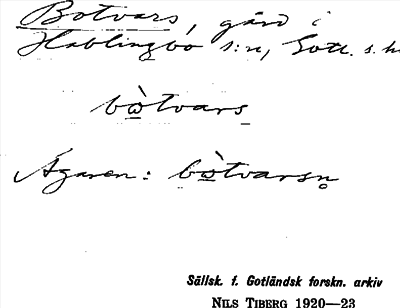 Botvars, gård i
Hablingbo s:n, Gotl. s.
bò̲tvars̲
Ägaren: bò̲tvarsn̥
Sällsk. f. Gotländsk forskn. arkiv
NILS TIBERG 1920—23